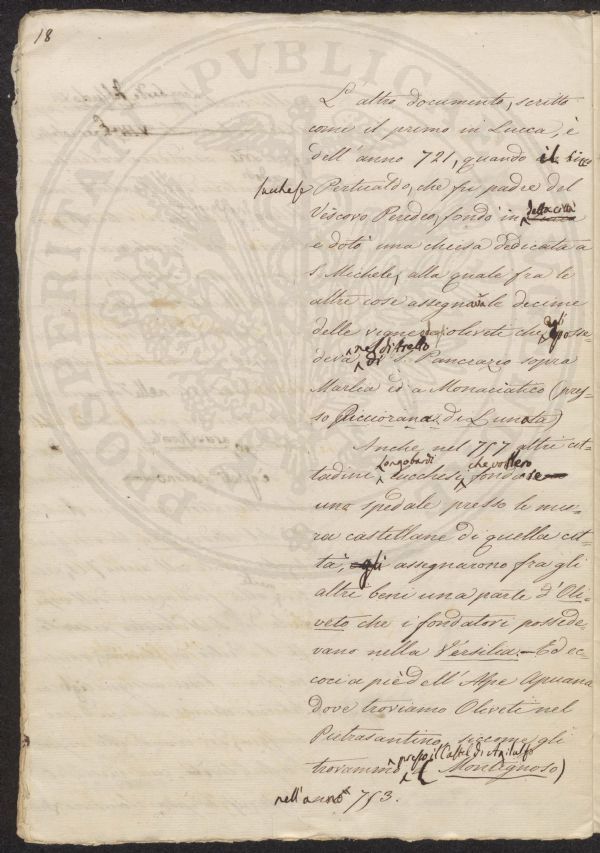 18
L'altro documento, scritto
come il primo in Lucca, è
dell'anno 721, quando il
lucchese Pertualdo, che fu padre del
Vescovo Peredeo, fondò in della città
e dotò una chiesa dedicata a
S. Michele, alla quale fra le
altre cose assegnava le decime
delle vigne oliveti che egli posse-
deva nel distretto di S. Pancrazio sopra
Marlia ed a Monaciatico (pres-
so Picciorana di Lunata)
Anche nel 757 altri cit-
tadini Longobardi lucchesi che vollero fondare
una spedale presso le mu-
ra castellane di quella cit-
tà, assegnarono fra gli
altri beni una parte d'Oli-
veto che i fondatori possede-
vano nella Versilia. Ed ec-
coci a piè dell'Alpe Apuana
dove troviamo Oliveti nel
Pietrasantino, siccome gli
trovammo presso il Castel di Agilulfo (Montignoso)
nell'anno 753.
PVBLICAE
POSTERITATI